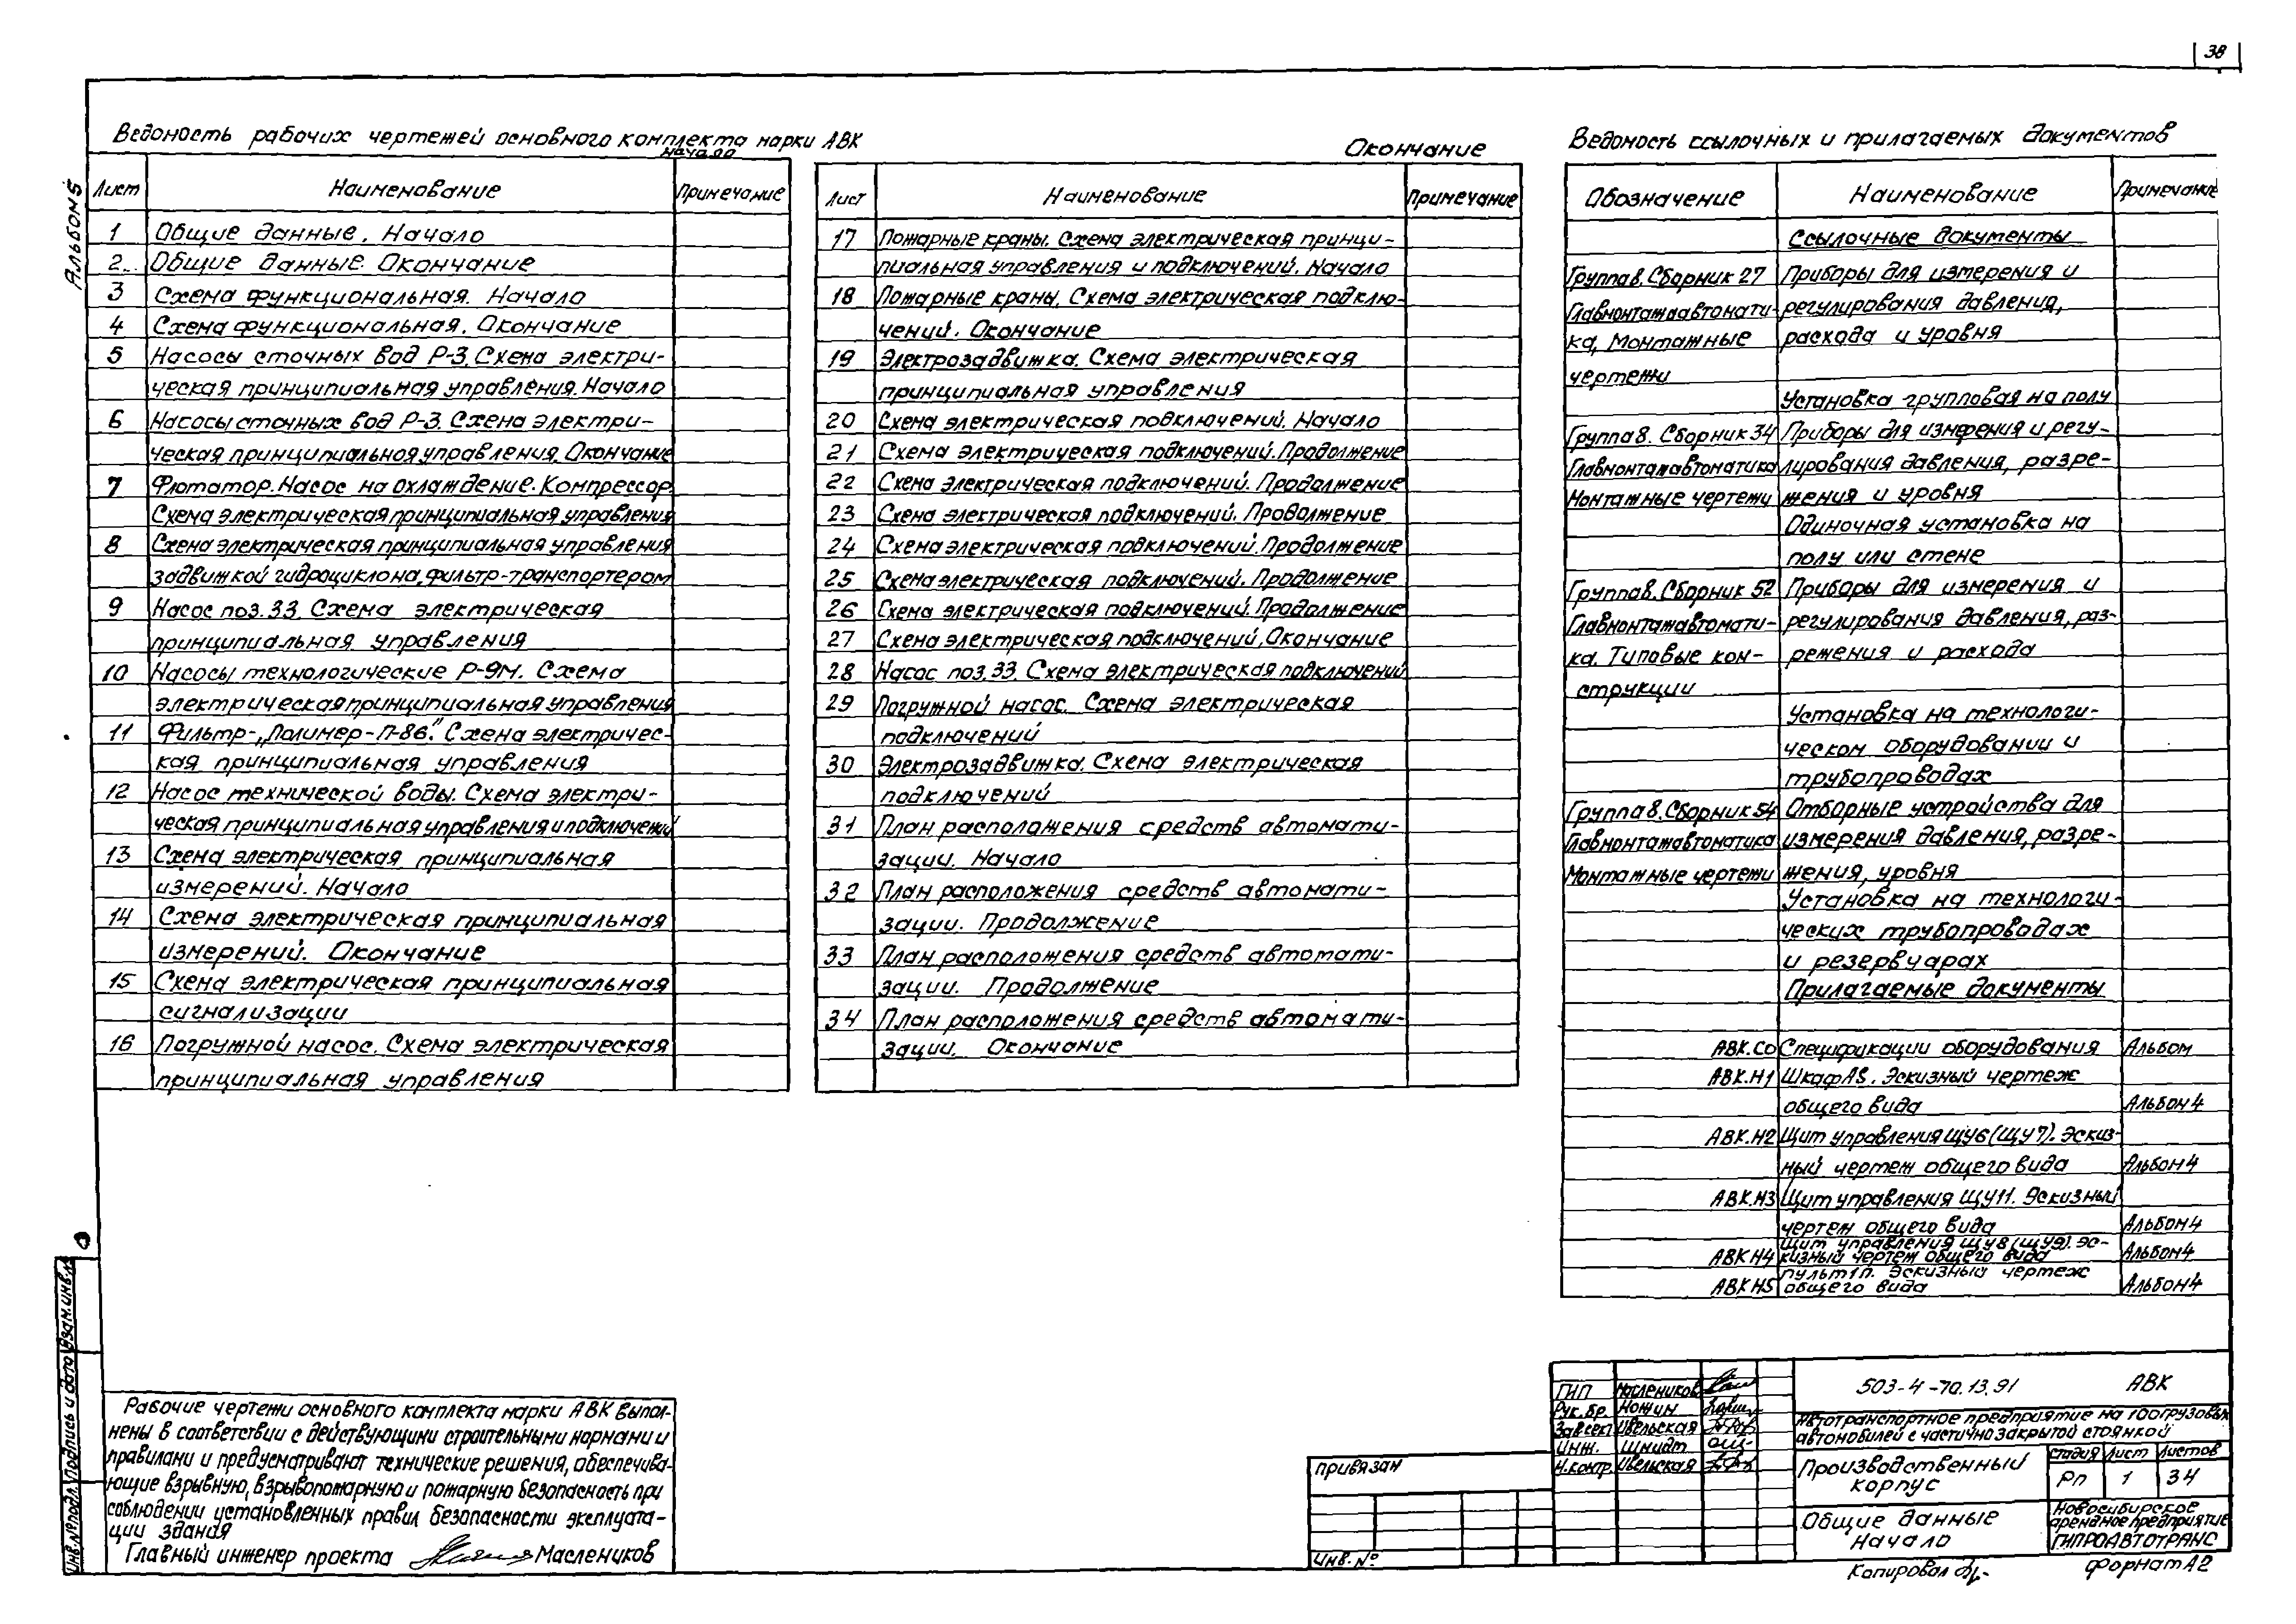 38
Альбом 5
Ведомость рабочих чертежей основного комплекта марки АВК
начало
Лист Наименование Примечание
1 Общие данные. Начало
2 Общие данные. Окончание
3 Схема функциональная. Начало
4 Схема функциональная. Окончание
5 Насосы сточных вод Р-3. Схема электри-
ческая принципиальная управления. Начало
6 Насосы сточных вод Р-3. Схема электри-
ческая принципиальная управления. Окончание
7 Флотатор. Насос на охлаждение. Компрессор.
Схема электрическая принципиальная управления
8 Схема электрическая принципиальная управления
задвижкой гидроциклона, фильтр-транспортером
9 Насос поз. 33. Схема электрическая
принципиальная управления
10 Насосы технологические Р-9М. Схема
электрическая принципиальная управления
11 Фильтр-„Полимер-П-86". Схема электричес-
кая принципиальная управления
12 Насос технической воды. Схема электри-
ческая принципиальная управления и подключений
13 Схема электрическая принципиальная
измерений. Начало
14 Схема электрическая принципиальная
измерений. Окончание
15 Схема электрическая принципиальная
сигнализации
16 Погружной насос. Схема электрическая
принципиальная управления
Окончание
Лист Наименование Примечание
17 Пожарные краны. Схема электрическая принци-
пиальная управления и подключений. Начало
18 Пожарные краны. Схема электрическая подклю-
чений. Окончание
19 Электрозадвижка. Схема электрическая
принципиальная управления
20 Схема электрическая подключений. Начало
21 Схема электрическая подключений. Продолжение
22 Схема электрическая подключений. Продолжение
23 Схема электрическая подключений. Продолжение
24 Схема электрическая подключений. Продолжение
25 Схема электрическая подключений. Продолжение
26 Схема электрическая подключений. Продолжение
27 Схема электрическая подключений. Окончание
28 Насос поз. 33. Схема электрическая подключений
29 Погружной насос. Схема электрическая
подключений
30 Электрозадвижка. Схема электрическая
подключений
31 План расположения средств автомати-
зации. Начало
32 План расположения средств автомати-
зации. Продолжение
33 План расположения средств автомати-
зации. Продолжение
34 План расположения средств автомати-
зации. Окончание
Ведомость ссылочных и прилагаемых документов
Обозначение Наименование Примечание
Ссылочные документы
Группа 8. Сборник 27 Приборы для измерения и
Главмонтажавтомати- регулирования давления,
ка, Монтажные расхода и уровня
чертежи
Установка групповая на полу
Группа 8. Сборник 34 Приборы для измерения и регу-
Главмонтажавтоматика лирования давления, разре-
Монтажные чертежи жения и уровня
Одиночная установка на
полу или стене
Группа 8. Сборник 52 Приборы для измерения и
Главмонтажавтомати- регулирования давления, раз-
ка. Типовые кон- режения и расхода
струкции
Установка на технологи-
ческом оборудовании и
трубопроводах
Группа 8. Сборник 54 Отборные устройства для
Главмонтажавтоматика измерения давления, разре-
Монтажные чертежи жения, уровня
Установка на технологи-
ческих трубопроводах
и резервуарах
Прилагаемые документы
АВК.СО Спецификации оборудования Альбом
АВК.Н1 Шкаф А8. Эскизный чертеж
общего вида Альбом 4
АВК.Н2 Щит управления ЩУ6 (ЩУ7). Эскиз-
ный чертеж общего вида Альбом 4
АВК.Н3 Щит управления ЩУ11. Эскизный
чертеж общего вида Альбом 4
Щит управления ЩУ8 (ЩУ9). Эс-
АВК Н4 кизный чертеж общего вида Альбом 4
Пульт 1П. Эскизный чертеж
АВК Н5 общего вида Альбом 4
Рабочие чертежи основного комплекта марки АВК выпол-
нены в соответствии с действующими строительными нормами и
правилами и предусматривают технические решения, обеспечива-
ющие взрывную, взрывопожарную и пожарную безопасность при
соблюдении установленных правил безопасности эксплуата-
ции здания
Главный инженер проекта Маслеников
Инв. № подл. Подпись и дата Взам. инв. №
Привязан
Инв. №
ГИП Маслеников
Рук. бр. Ножин
Зав сект Ивельская
Инж. Шмидт
Н. контр. Ивельская
503-4-70.13.91 АВК
Автотранспортное предприятие на 100 грузовых
автомобилей с частично закрытой стоянкой
Производственный
корпус
Стадия Лист Листов
РП 1 34
Общие данные
Начало
Новосибирское
арендное предприятие
ГИПРОАВТОТРАНС
Копировал
Формат А2